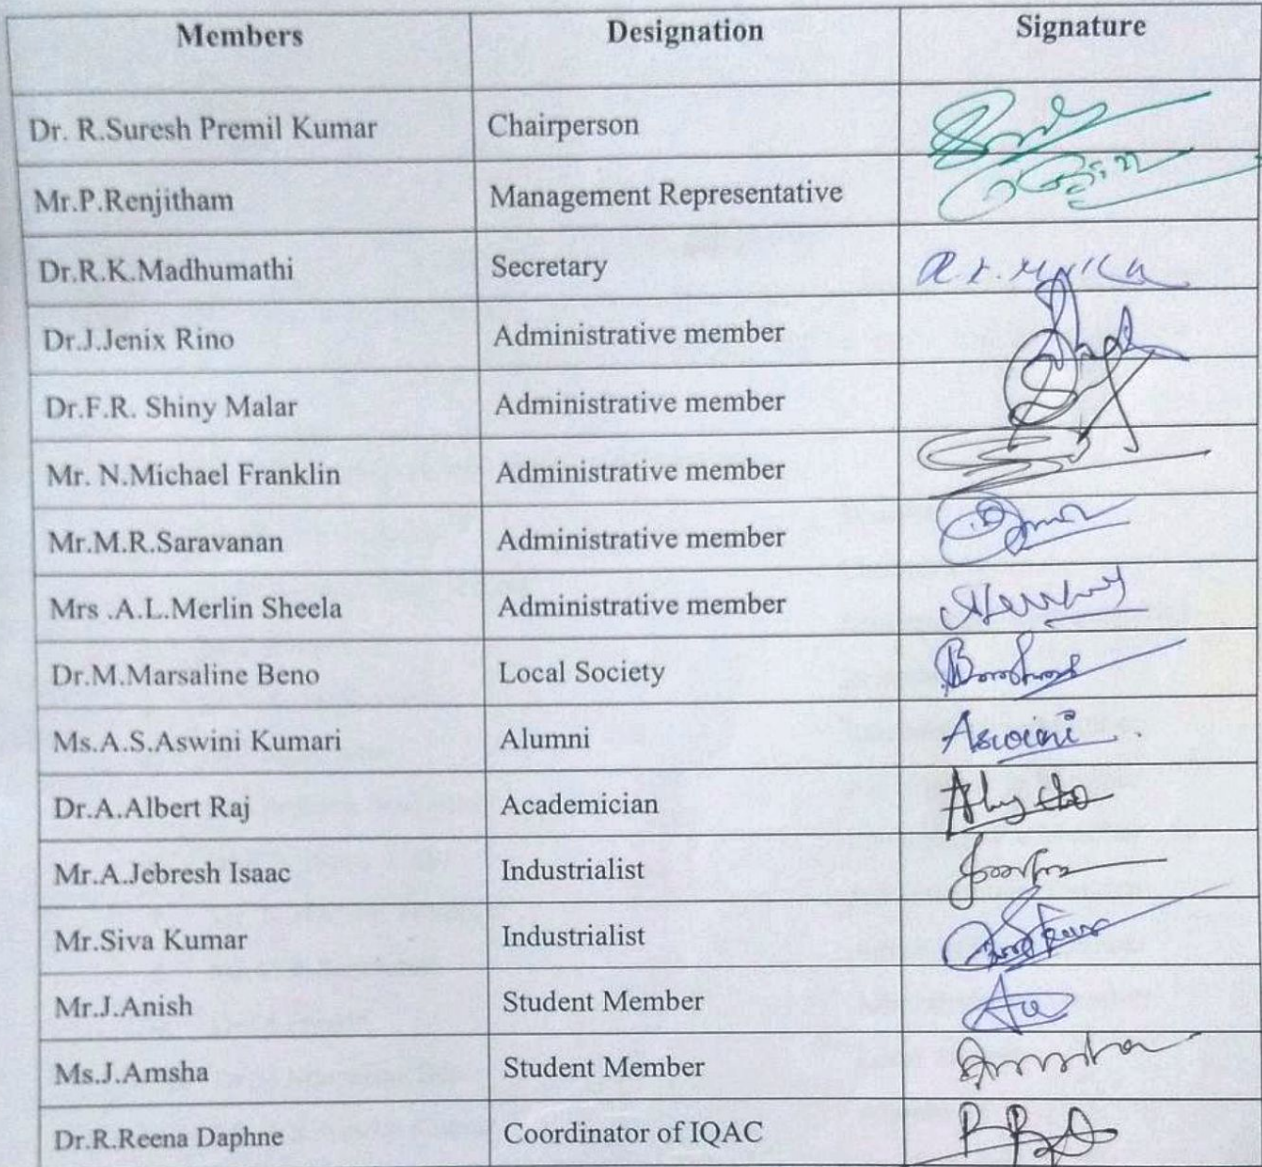 Members Designation Signature
Dr. R.Suresh Premil Kumar Chairperson
Mr.P.Renjitham Management Representative
Dr.R.K.Madhumathi Secretary
Dr.J.Jenix Rino Administrative member
Dr.F.R. Shiny Malar Administrative member
Mr. N.Michael Franklin Administrative member
Mr.M.R.Saravanan Administrative member
Mrs .A.L.Merlin Sheela Administrative member
Dr.M.Marsaline Beno Local Society
Ms.A.S.Aswini Kumari Alumni Aswini
Dr.A.Albert Raj Academician
Mr.A.Jebresh Isaac Industrialist
Mr.Siva Kumar Industrialist
Mr.J.Anish Student Member
Ms.J.Amsha Student Member
Dr.R.Reena Daphne Coordinator of IQAC